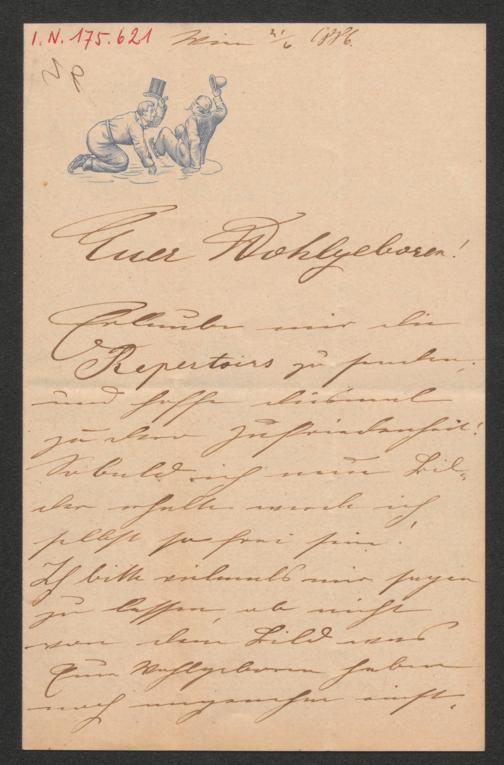 I. N. 175.621
Wien 21/6 1886.
Euer Wohlgeboren!
Erlaube mir die
Repertoirs zu senden,
und hoffe diesmal
zu Ihrer Zufriedenheit!
Sobald ich neue Bil-
der erhalte werde ich
selbst so frei sein!
Ich bitte vielmals mir sagen
zu lassen, ob nicht
von dem Bild was
Euer Wohlgeboren haben
noch